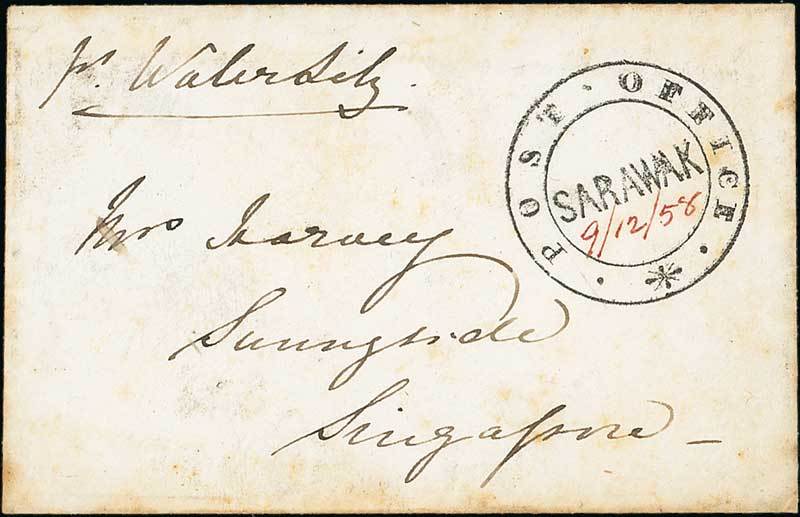 pr. Waterlily.
POST · OFFICE
SARAWAK
9/12/58
Mrs Harvey
Sunnyside
Singapore